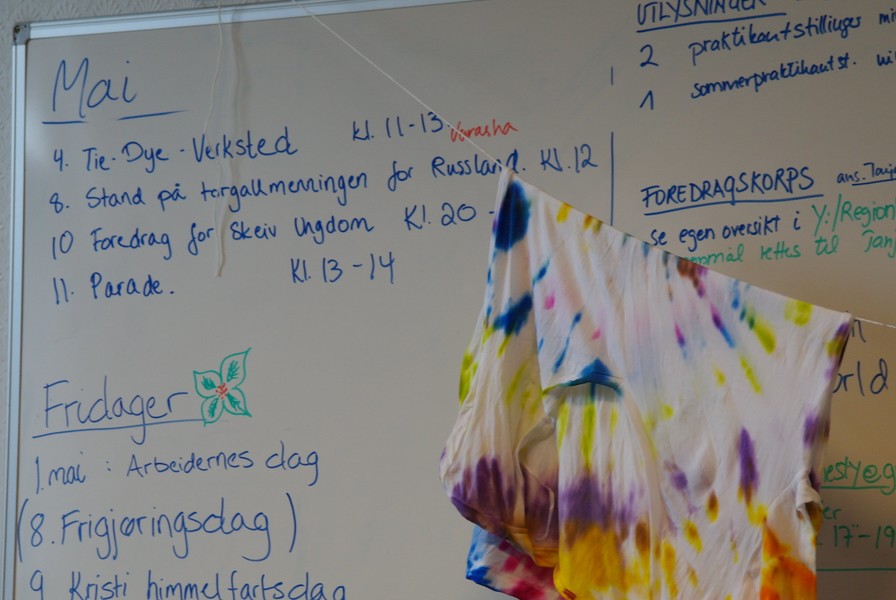 Mai
4. Tie-Dye-Verksted kl. 11-13
8. Stand på torgallmenningen for Russland. Kl.12
10 Foredrag for Skeiv Ungdom Kl. 20 -
11. Parade. Kl. 13-14
Fridager
1.mai : Arbeidernes dag
(8. Frigjøringsdag)
9 Kristi himmelfartsdag
UTLYSNINGER
2 praktikantstillinger mi
1 sommerpraktikantst.
FOREDRAGSKORPS ans.
se egen oversikt i Y:/Region
rettes til Tanj